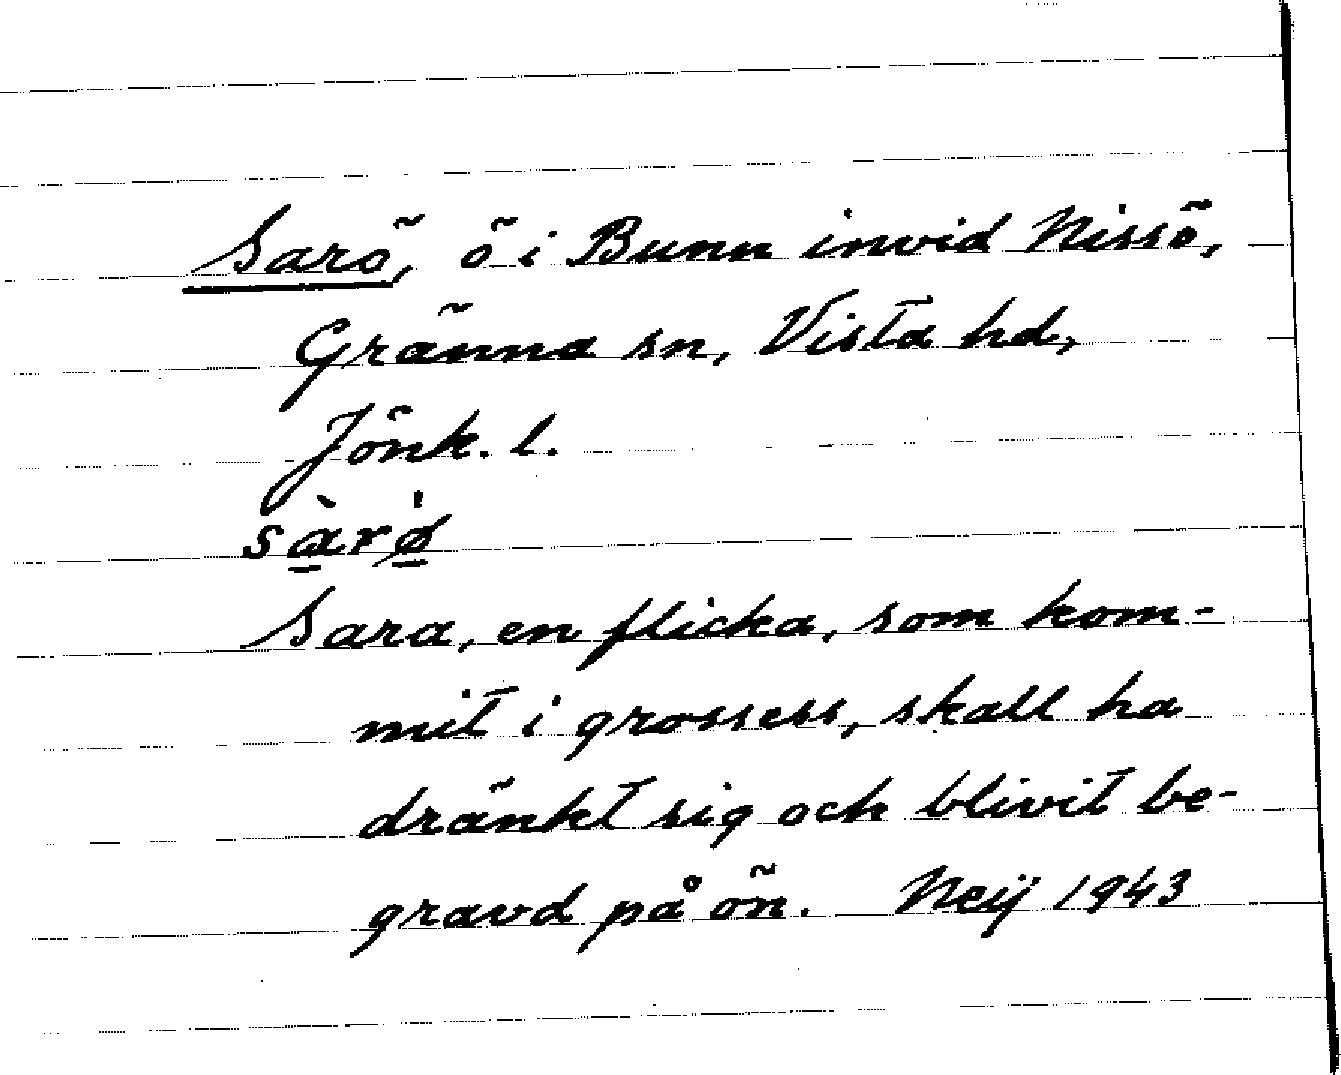 Sarö, ö i Bunn invid Nissö,
Gränna sn, Vista hd,
Jönk. l.
sàrø̍
Sara, en flicka, som kom-
mit i grossess, skall ha
dränkt sig och blivit be-
gravd på ön. Neij 1943